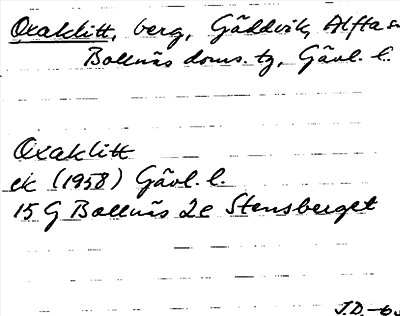 Oxaklitt, berg, Gäddvik, Alfta s
Bollnäs doms. tg, Gävl. l.
Oxaklitt
ek (1958) Gävl. l.
15 G Bollnäs 2e Stensberget
J.D. -63